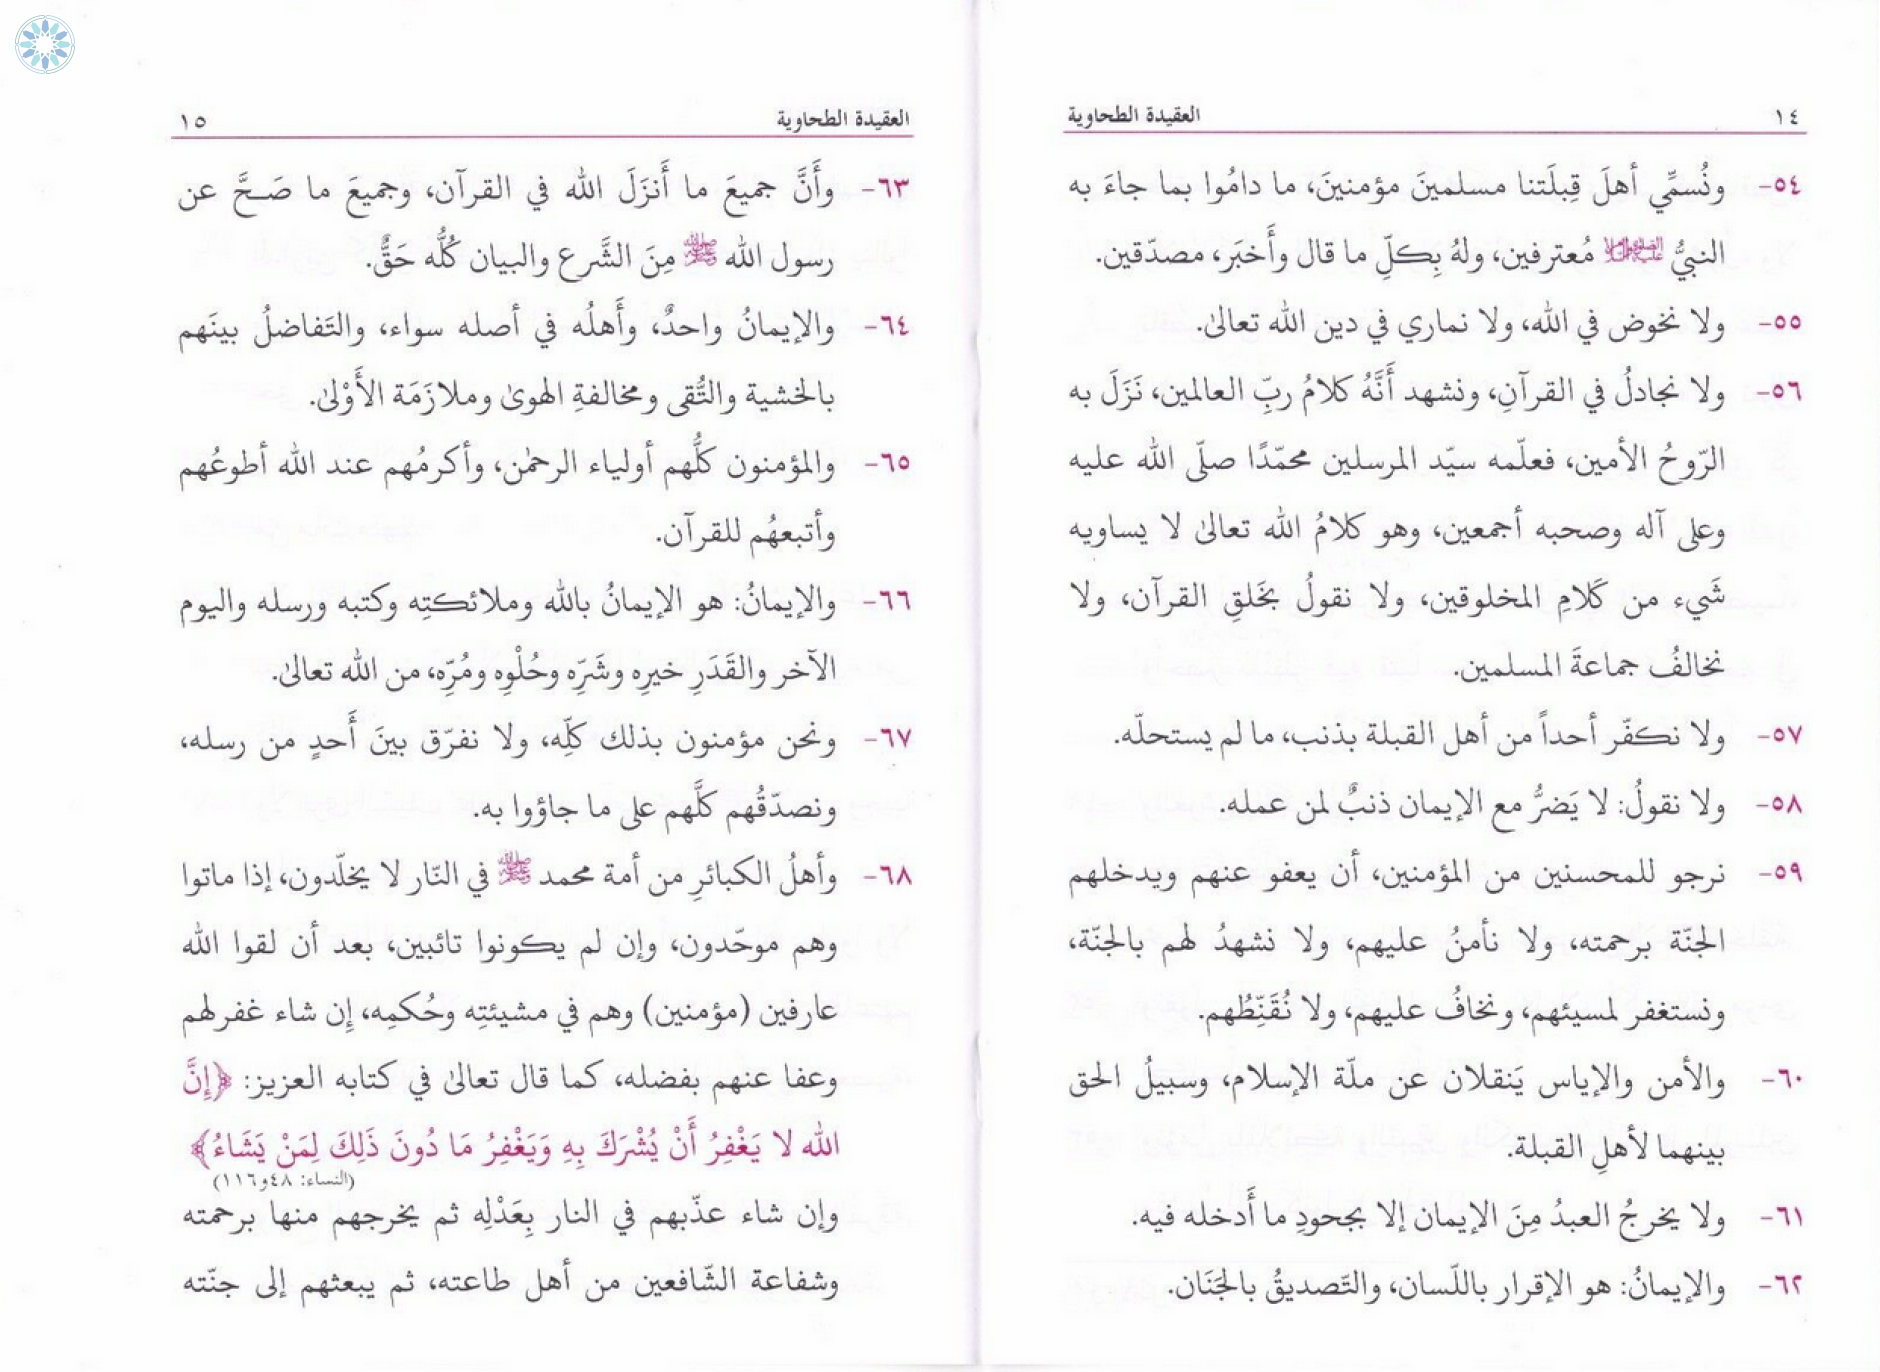 ١٤ العقيدة الطحاوية
٥٤- ونُسمِّي أهلَ قِبلَتنا مسلمينَ مؤمنينَ، ما دامُوا بما جاءَ به
النبيُّ عليه الصلاة والسلام مُعترفين، ولهُ بِكلِّ ما قال وأَخبَر، مصدّقين.
٥٥- ولا نخوض في الله، ولا نماري في دين الله تعالىٰ.
٥٦- ولا نجادلُ في القرآنِ، ونشهد أَنَّهُ كلامُ ربِّ العالمين، نَزَلَ به
الرّوحُ الأمين، فعلّمه سيّد المرسلين محمّدًا صلّى الله عليه
وعلى آله وصحبه أجمعين، وهو كلامُ الله تعالىٰ لا يساويه
شَيء من كَلامِ المخلوقين، ولا نقولُ بخَلقِ القرآن، ولا
نخالفُ جماعةَ المسلمين.
٥٧- ولا نكفّر أحداً من أهل القبلة بذنب، ما لم يستحلّه.
٥٨- ولا نقولُ: لا يَضرُّ مع الإيمان ذنبٌ لمن عمله.
٥٩- نرجو للمحسنين من المؤمنين، أن يعفو عنهم ويدخلهم
الجنّة برحمته، ولا نأمنُ عليهم، ولا نشهدُ لهم بالجنّة،
ونستغفر لمسيئهم، ونخافُ عليهم، ولا نُقَنِّطُهم.
٦٠- والأمن والإياس يَنقلان عن ملّة الإسلام، وسبيلُ الحق
بينهما لأهلِ القبلة.
٦١- ولا يخرجُ العبدُ مِنَ الإيمان إلا بجحودِ ما أَدخله فيه.
٦٢- والإيمانُ: هو الإقرار باللّسان، والتّصديقُ بالجَنَان.
العقيدة الطحاوية ١٥
٦٣- وأَنَّ جميعَ ما أَنزَلَ الله في القرآن، وجميعَ ما صَحَّ عن
رسول الله ﷺ مِنَ الشَّرع والبيان كُلُّه حَقٌّ.
٦٤- والإيمانُ واحدٌ، وأَهلُه في أصله سواء، والتَفاضلُ بينَهم
بالخشية والتُّقى ومخالفةِ الهوىٰ وملازَمَة الأَوْلىٰ.
٦٥- والمؤمنون كلُّهم أولياء الرحمٰن، وأكرمُهم عند الله أطوعُهم
وأتبعهُم للقرآن.
٦٦- والإيمانُ: هو الإيمانُ بالله وملائكتِه وكتبه ورسله واليوم
الآخر والقَدَرِ خيرِه وشَرِّه وحُلْوِه ومُرِّه، من الله تعالىٰ.
٦٧- ونحن مؤمنون بذلك كلِّه، ولا نفرّق بينَ أَحدٍ من رسله،
ونصدّقُهم كلَّهم على ما جاؤوا به.
٦٨- وأهلُ الكبائرِ من أمة محمد ﷺ في النّار لا يخلّدون، إذا ماتوا
وهم موحّدون، وإن لم يكونوا تائبين، بعد أن لقوا الله
عارفين (مؤمنين) وهم في مشيئتِه وحُكمِه، إن شاء غفرلهم
وعفا عنهم بفضله، كما قال تعالىٰ في كتابه العزيز: ﴿إِنَّ
الله لا يَغْفِرُ أَنْ يُشْرَكَ بِهِ وَيَغْفِرُ مَا دُونَ ذَلِكَ لِمَنْ يَشَاءُ﴾
(النساء: ٤٨و١١٦)
وإن شاء عذّبهم في النار بِعَدْلِه ثم يخرجهم منها برحمته
وشفاعة الشّافعين من أهل طاعته، ثم يبعثهم إلى جنّته